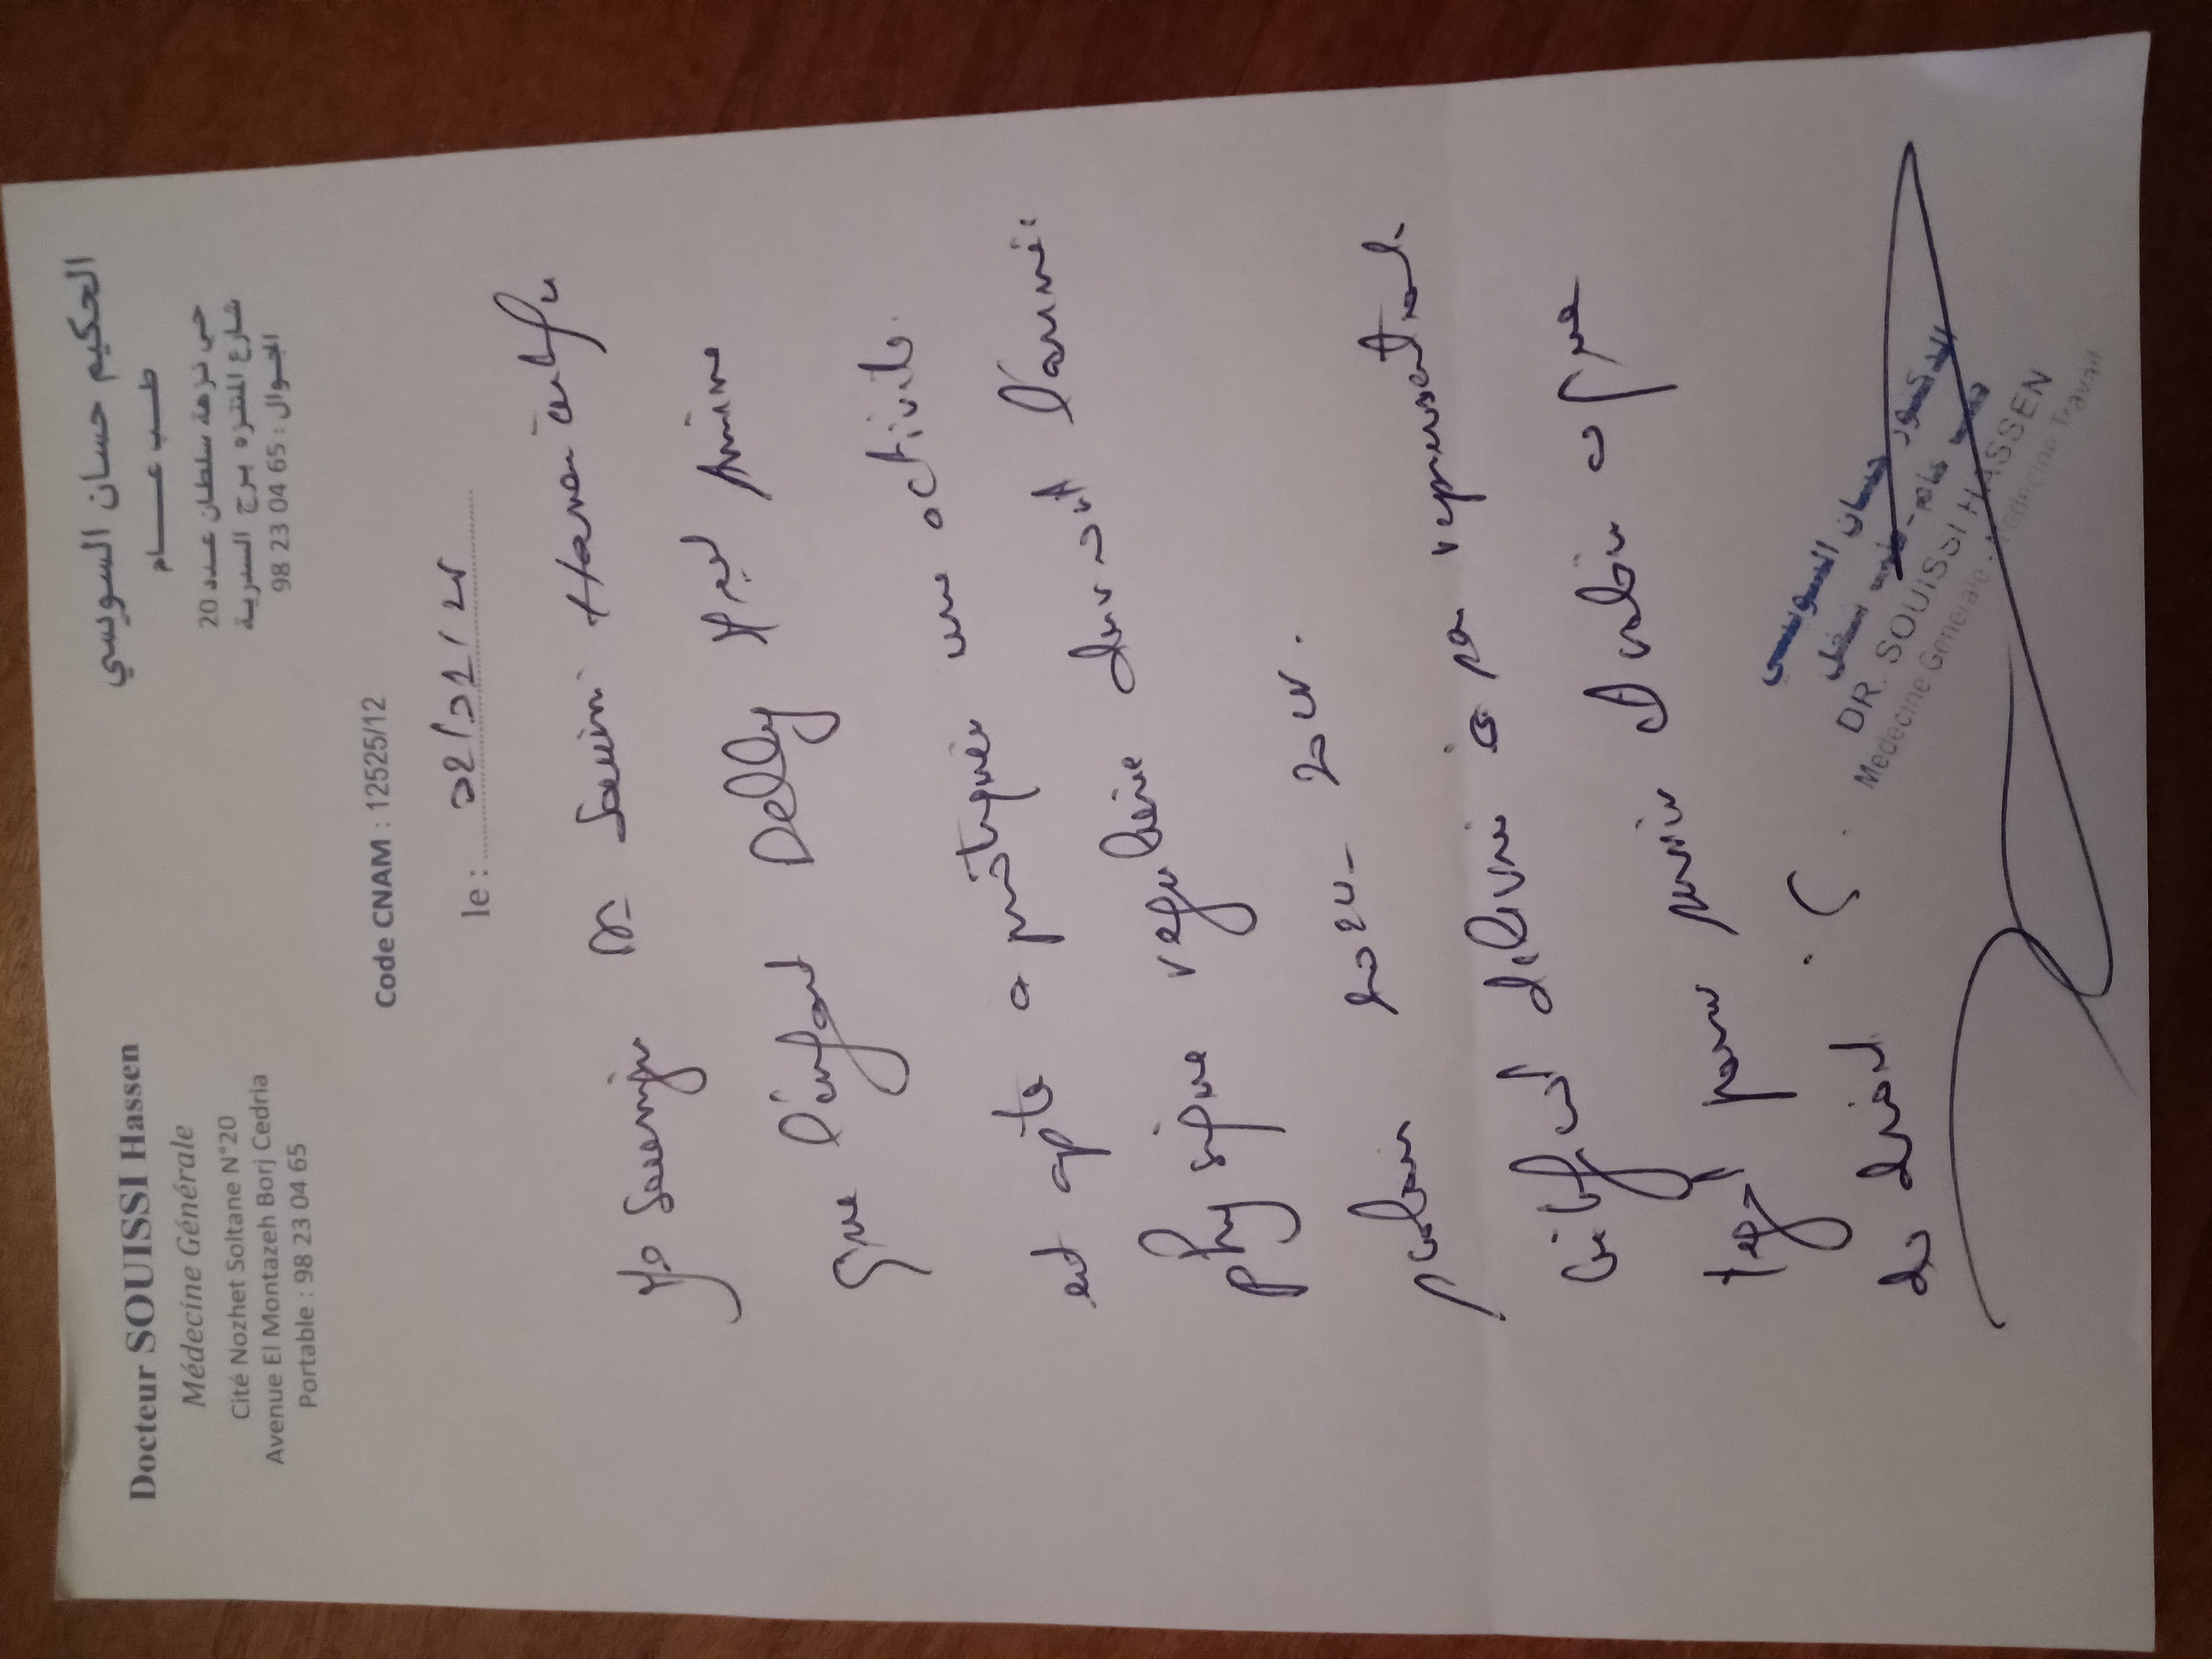 Docteur SOUISSI Hassen
Médecine Générale
Cité Nozhet Soltane N°20
Avenue El Montazeh Borj Cedria
Portable : 98 23 04 65
الحكيم حسان السويسي
طـــب عـــــام
حي نزهة سلطان عدد 20
شارع المنتزه برج السدرية
الجوال : 98 23 04 65
Code CNAM : 12525/12
le :
Je Soussigné Dr Souissi Hassen certifie
que l'enfant Delly Amine
est apte a pratiquer une activité
physique régulière durant l'année
scolaire
certificat délivré a
pour servir et valoir ce que
de droit
الدكتور حسان السويسي
DR. SOUISSI HASSEN
Médecine Générale - Médecine Travail